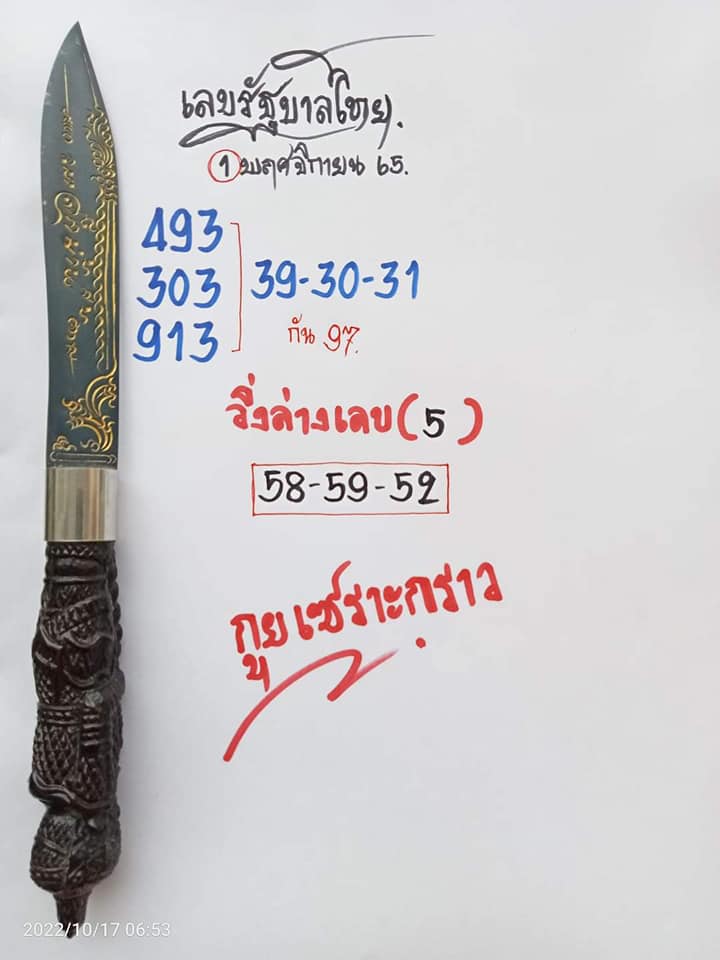 เลขรัฐบาลไทย.
1 พฤศจิกายน 65.
493
303
913
39-30-31
กัน 97.
วิ่งล่างเลข (5)
58-59-52
กูยเซราะกราว
2022/10/17 06:53